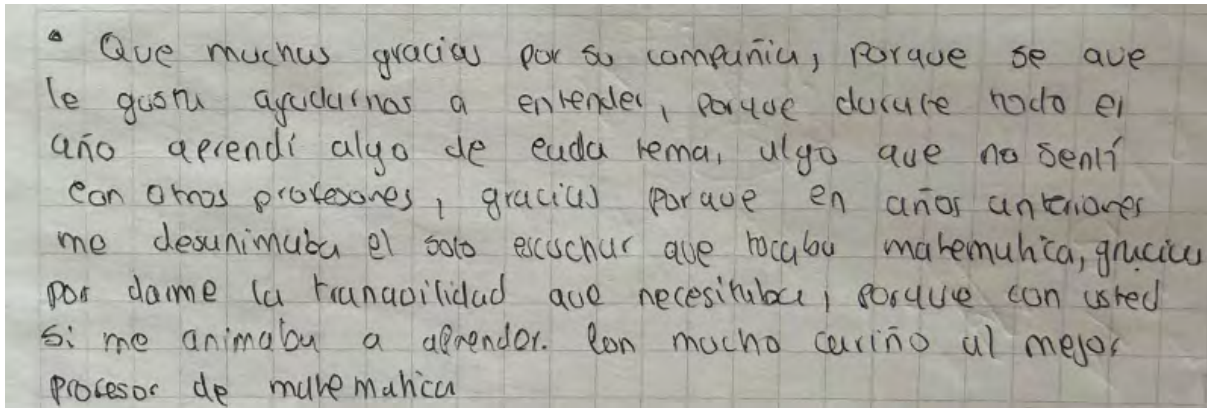 • Que muchas gracias por su compañia, porque se que
le gusta ayudarnos a entender, porque durate todo el
año aprendí algo de cada tema, algo que no sentí
con otros profesores, gracias porque en años anteriores
me desanimaba el solo escuchar que tocaba matematica, gracias
por darme la tranquilidad que necesitaba, porque con usted
si me animaba a aprender. Con mucho cariño al mejor
profesor de matematica